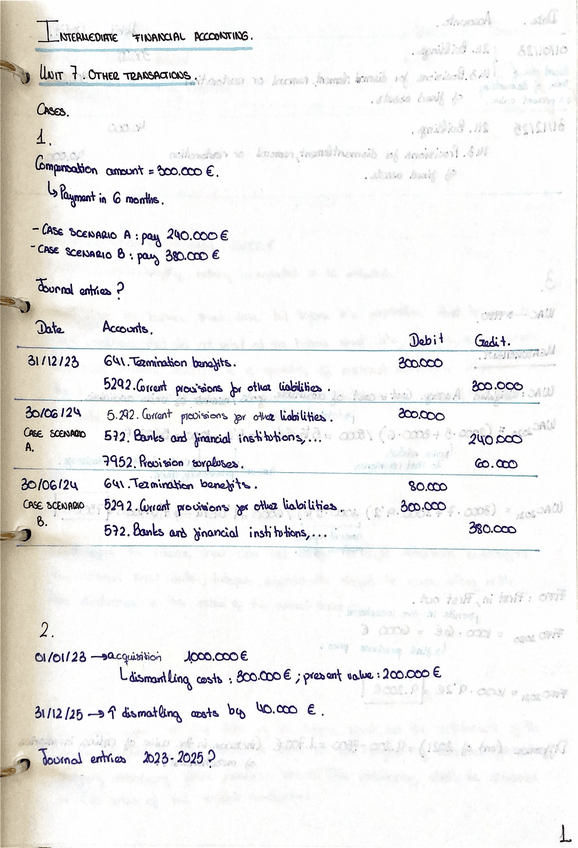 INTERMEDIATE FINANCIAL ACCOUNTING.
UNIT 7. OTHER TRANSACTIONS.
CASES.
1.
Compensation amount = 300.000 €.
↳ Payment in 6 months.
- CASE SCENARIO A : pay 240.000 €
- CASE SCENARIO B : pay 380.000 €
Journal entries ?
Date Accounts. Debit Credit.
31/12/23 641. Termination benefits. 300.000
5292. Current provisions for other liabilities. 300.000
30/06/24 5.292. Current provisions for other liabilities. 300.000
CASE SCENARIO A. 572. Banks and financial institutions,... 240.000
7952. Provision surpluses. 60.000
30/06/24 641. Termination benefits. 80.000
CASE SCENARIO B. 5292. Current provisions for other liabilities. 300.000
572. Banks and financial institutions,... 380.000
2.
01/01/23 → acquisition 1000.000 €
↳ dismantling costs : 300.000 € ; present value : 200.000 €
31/12/25 → ↑ dismatling costs by 40.000 €.
Journal entries 2023-2025 ?
1